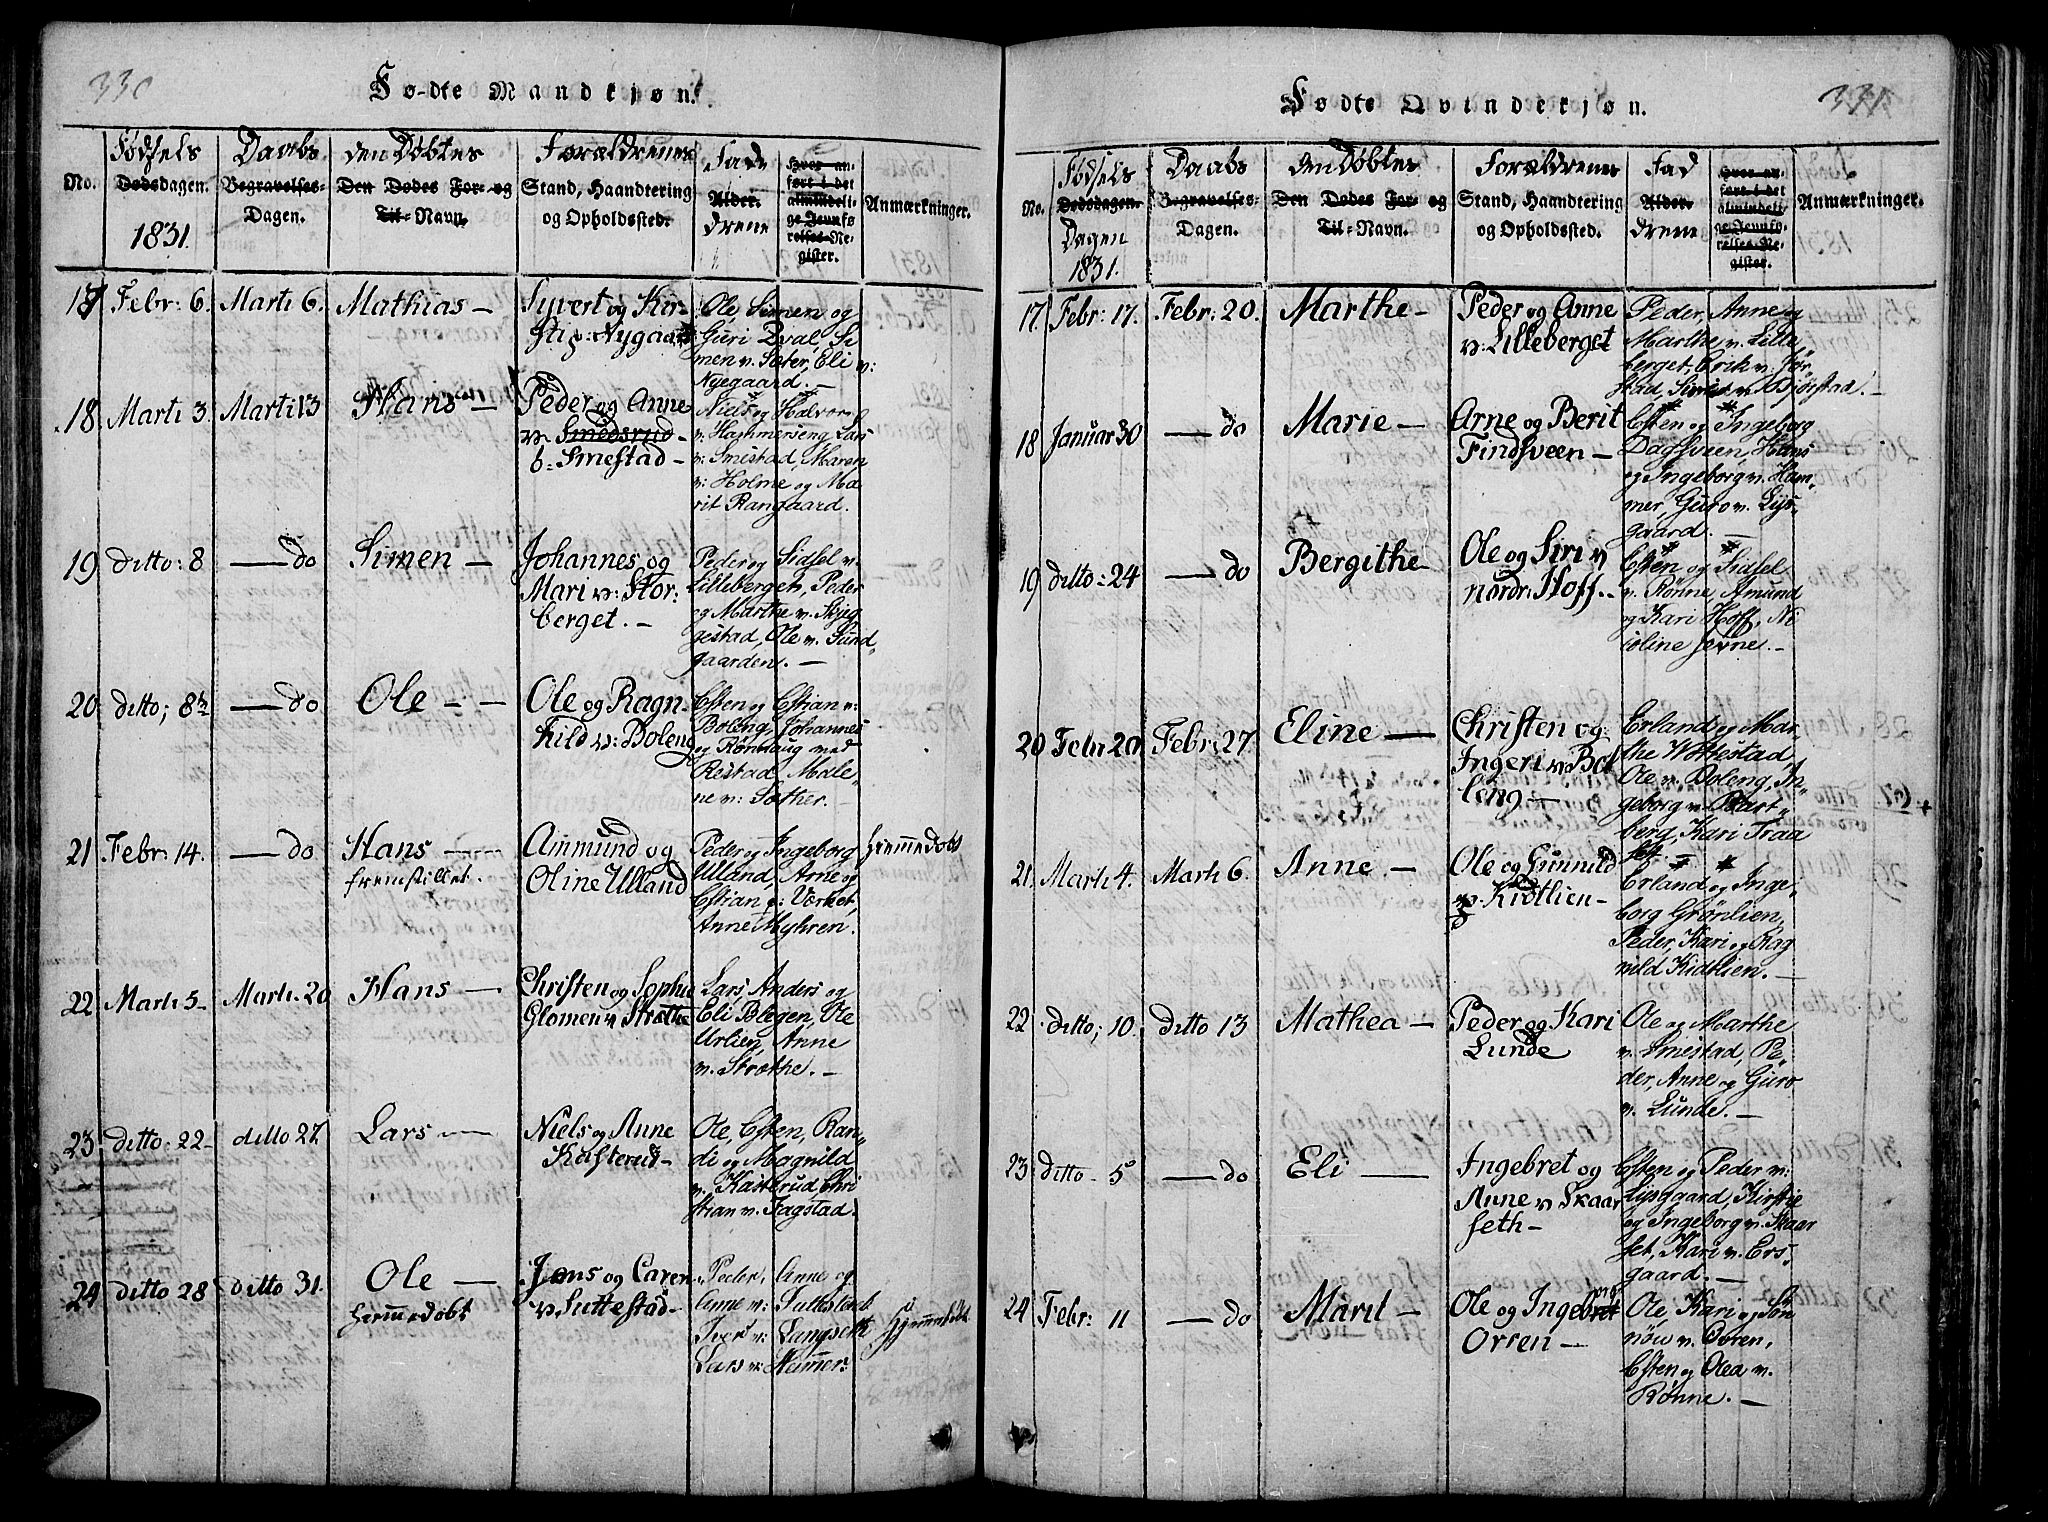 330
Fødte Mandkjøn.
No.
Fødsels
Dødsdagen.
1831.
Daabs
Begravelses-
Dagen.
den Døbtes
Den Dødes For- og
Til-Navn.
Forældrenes
Stand, Haandtering
og Opholdssted.
Fad
Alder.
drene
Hvor an-
ført i det
almindeli-
ge Jevnfø
relses-Re-
gister.
Anmærkninger.
17 Febr: 6. Marti 6. Mathias —
Syvert og Kir-
sti v: Nygaard
Ole, Simen og
Guri Qval, Si
men v. Sæter, Eli v:
Nyegaard. —
18. Marti 3. Marti 13 Hans —
Peder og Anne
v. Smedsrud
b. Smestad —
Niels og Halvor
v. Hammerseng Lars
v. Smestad, Maren
v: Holme og Ma
rit Rangaard.
19 ditto: 8 — do Simen —
Johannes og
Mari v: Stor:
berget. —
Peder og Sidsel v.
Lilleberget, Peder
og Marthe v. Skjeg
gestad, Ole v. Sund
gaarden. —
20 ditto; 8de — do Ole —
Ole og Ragn-
hild v: Boleng
Esten og Estian v:
Boleng, Johannes
og Rønnaug med
Restad, Male-
ne v: Sæther. —
21. Febr: 14. — do Hans —
fremstillet.
Ammund og
Oline Ulland
Peder og Ingeborg
Ulland, Arne og
Estian v: Værket,
Anne Myhren.
hjemmedøbt
22 Marti 5 Marti. 20 Hans —
Christen og Sophie
Glomen v Stræthe
Lars, Anders og
Eli Blegen, Ole
Urlien, Anne
v. Stræthe. —
23. ditto: 22 ditto 27. Lars —
Niels og Anne
Kasterud —
Ole, Esten, Ran-
di og Magnild
v. Kasterud Chri
stian v. Fagstad.
24 ditto 28 ditto 31. Ole —
hjemmedøbt
Jens og Caren
v. Suttestad —
Peder, Anne og
Anne v: Suttestad
Iver v: Langseth
Lars v: Hammer:
hjemmedøbt
331
Fødte Qvindekjøn.
No.
Fødsels
Dødsdagen.
Dagen
1831.
Daabs
Begravelses-
Dagen.
den Døbtes
Den Dødes For- og
Til-Navn.
Forældrenes
Stand, Haandtering
og Opholdssted.
Fad
Alder.
drene
Hvor an-
ført i det
almindeli-
ge Jevnfø-
relses-Re-
gister.
Anmærkninger.
17. Febr: 17. Febr: 20. Marthe —
Peder og Anne
v: Lilleberget
Peder, Anne og
Marthe v. Lille
berget, Erik v. Jør
stad, Siri v. Bjørstad. —
18 Januar 30 — do Marie —
Arne og Berit
Findsveen —
Esten og Ingeborg
Dagsveen, Hans
og Ingeborg v. Ham-
mer, Guro v. Lys-
gaard. —
19 ditto: 24 — do Bergithe
Ole og Siri v
nordr: Hoff. —
Esten og Sidsel
v. Rønne, Amund
og Kari Hoff, Ni
coline Jevne. —
20 Febr: 20. Febr: 27. Eline —
Christen og
Ingeri v. Bol
leng —
Erland og Mar
the Wottestad,
Ole v. Boleng, In-
geborg v. Bart-
berg, Kari Traa
set. —
21. Marti 4. Marti 6. Anne —
Ole og Gunnild
v. Kidtlien —
Erland og Inge-
borg Grønlien,
Peder, Kari og Rag
nild Kidtlien. —
22 ditto; 10. ditto 13 Mathea —
Peder og Kari
Lunde
Ole og Marthe
v. Smestad, Pe-
der, Anne og Guro
v. Lunde. —
23. ditto - 5 — do Eli —
Ingebret og
Anne v Skaar
seth —
Esten og Peder v:
Lysgaard, Kirstie
og Ingeborg v. Skaar
set, Kari v. Ers-
gaard. —
24 Febr: 11 — do Marit —
Ole og Ingeborg
Orren —
Ole, Kari og Søn
nøw v. Ovren,
Esten og Olea v.
Rønne. —